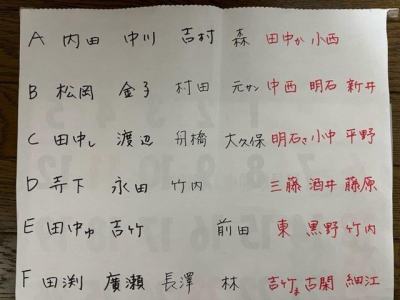 A 内田 中川 吉村 森 田中か 小西
B 松岡 金子 村田 元サン 中西 明石 新井
C 田中し 渡辺 舟橋 大久保 明石さ 小中 平野
D 寺下 永田 竹内 三藤 酒井 藤原
E 田中ゆ 吉竹 前田 東 黒野 竹内
F 田渕 廣瀬 長澤 林 吉竹ま 古閑 細江